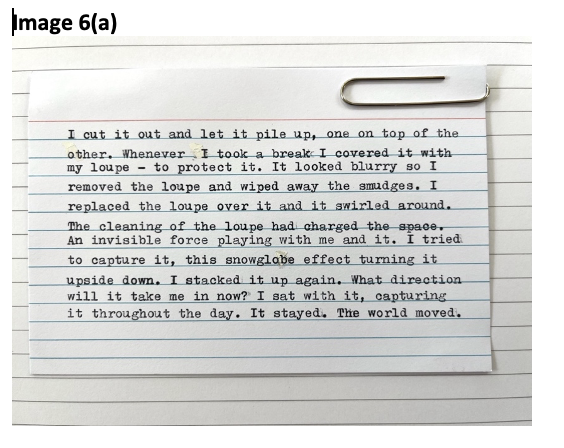 Image 6(a)
I cut it out and let it pile up, one on top of the
other. Whenever I took a break I covered it with
my loupe - to protect it. It looked blurry so I
removed the loupe and wiped away the smudges. I
replaced the loupe over it and it swirled around.
The cleaning of the loupe had charged the space.
An invisible force playing with me and it. I tried
to capture it, this snowglobe effect turning it
upside down. I stacked it up again. What direction
will it take me in now? I sat with it, capturing
it throughout the day. It stayed. The world moved.